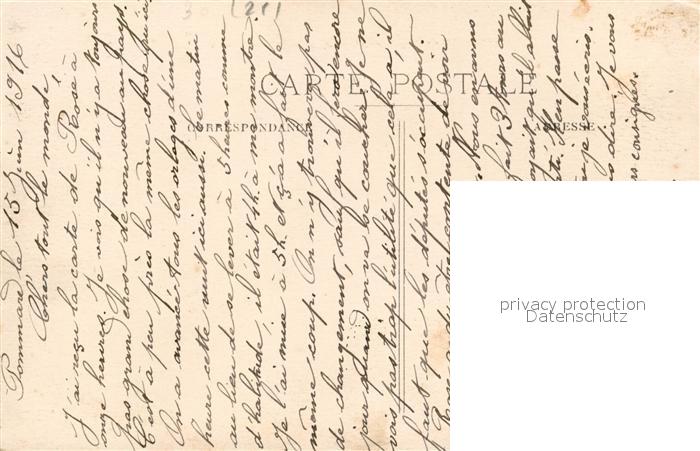 (21)
CARTE POSTALE
CORRESPONDANCE
ADRESSE
Pommard le 15 Juin 1916
Chers tout le monde!
J'ai reçu la carte de Rose à
onze heures. Je vois qu'il n'y a toujours
pas grand chose de nouveau au pays.
C'est à peu près la même chose qu'ici
On a avancé tous les orloges d'une
heure cette nuit ici aussi. Ce matin
au lieu de se lever à 5 heures comme
d'habitude, il était 4h à ma montre.
Je l'ai mise à 5h et çà a fait le
même coup. On n'y trouve pas
de changement, sauf qu'il fera encore
jour quand on va se coucher. Je ne
vois pas trop l'utilité que cela a, il
faut que les députés s'occupent.
Nous en avons
fait 3 tours au
qu'il fallait
pense
dire. Je vous
privacy protection
Datenschutz